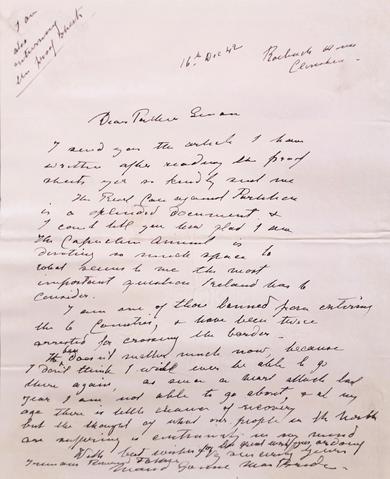 I am
also
returning
the proof sheets
16th Dec 42
Roebuck House
Clonskea
Dear Father Senan
I send you the article I have
written after reading the proof
sheets you so kindly sent me
The Real Case against Partition
is a splendid document &
I can't tell you how glad I am
The Capuchin Annual is
devoting so much space to
what seems to me the most
important question Ireland has to
consider.
I am one of those banned from entering
the 6 Counties, & have been twice
arrested for crossing the border.
The ban doesn't matter much now, because
I don't think I will ever be able to go
there again, as since a heart attack last
year I am not able to go about, & at my
age there is little chance of recovery
but the thought of what our people in the North
are suffering is in my mind
With best wishes for the great work you are doing
yours
Maud Gonne MacBride